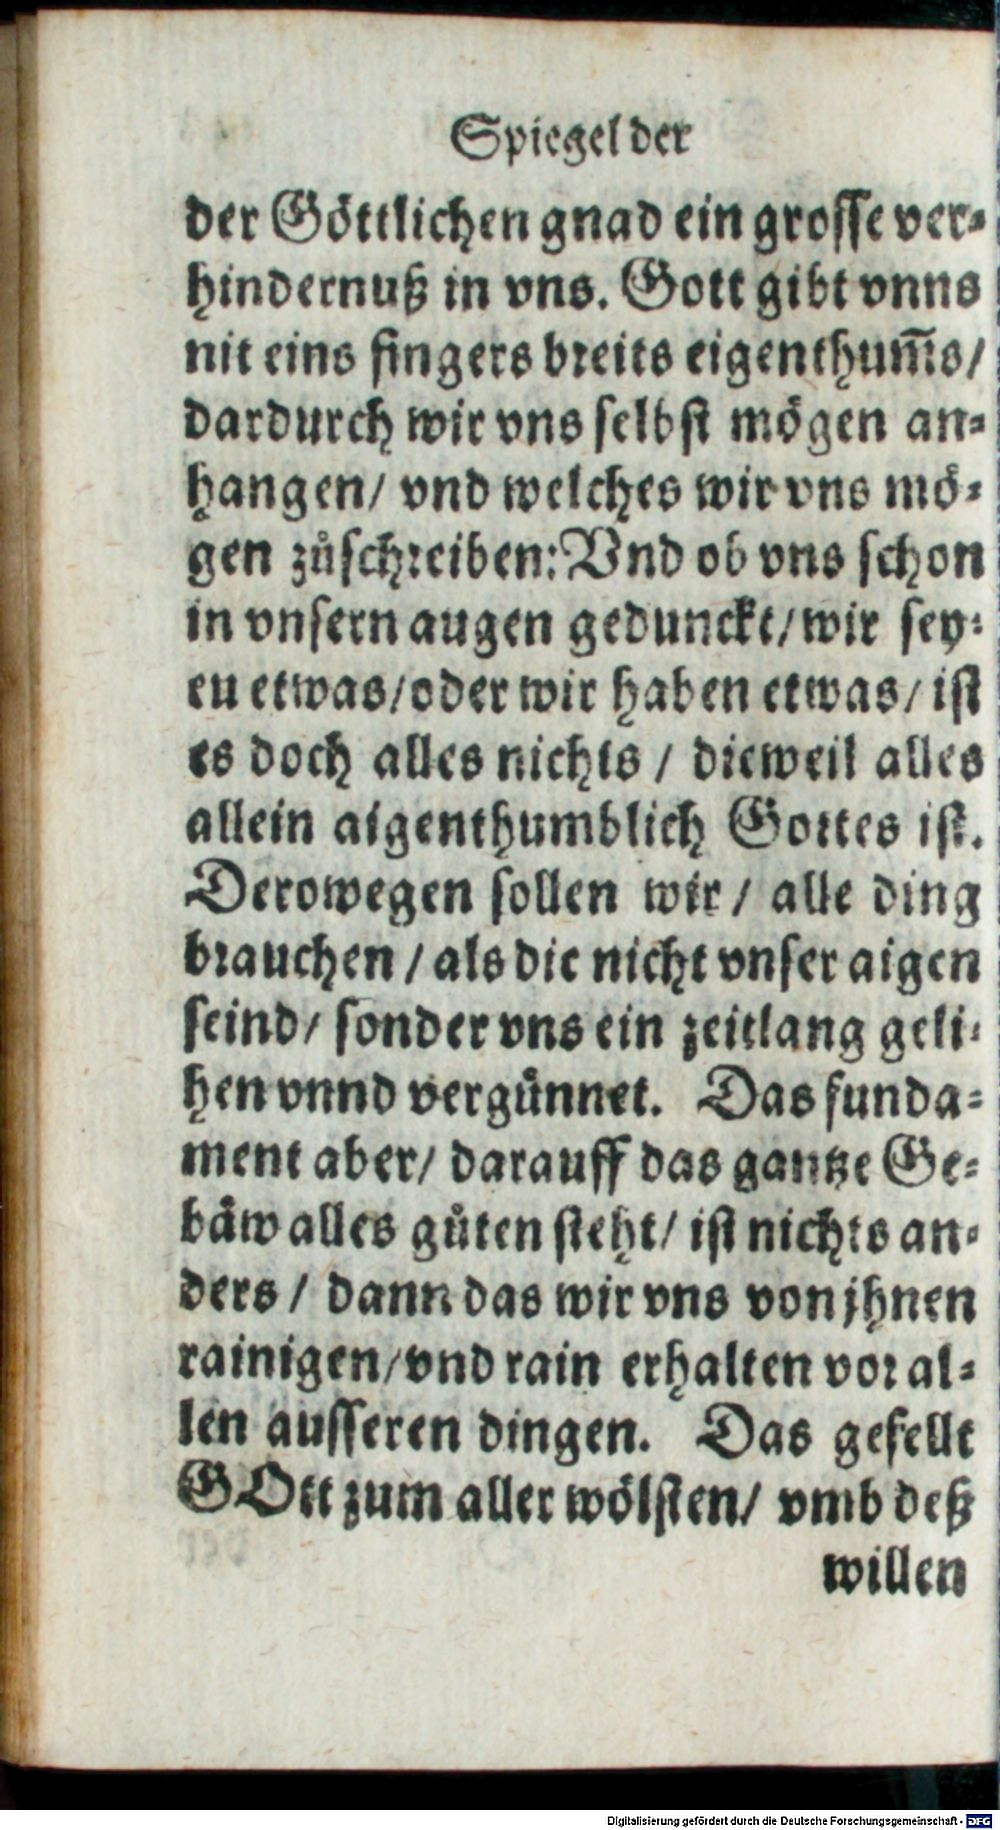 Spiegel der
der Göttlichen gnad ein grosse ver-
hindernuß in vns. Gott gibt vnns
nit eins fingers breits eigenthum̃s/
dardurch wir vns selbst mögen an-
hangen/ vnd welches wir vns mö-
gen zůschreiben: Vnd ob vns schon
in vnsern augen gedunckt/ wir sey-
eu etwas/ oder wir haben etwas/ ist
es doch alles nichts / dieweil alles
allein aigenthumblich Gottes ist.
Derowegen sollen wir / alle ding
brauchen / als die nicht vnser aigen
seind/ sonder vns ein zeitlang geli-
hen vnnd vergünnet. Das funda-
ment aber/ darauff das gantze Ge-
bäw alles gůten steht/ ist nichts an-
ders / dann das wir vns von jhnen
rainigen/ vnd rain erhalten vor al-
len ausseren dingen. Das gefellt
GOtt zum aller wölsten/ vmb deß
willen
Digitalisierung gefördert durch die Deutsche Forschungsgemeinschaft - DFG